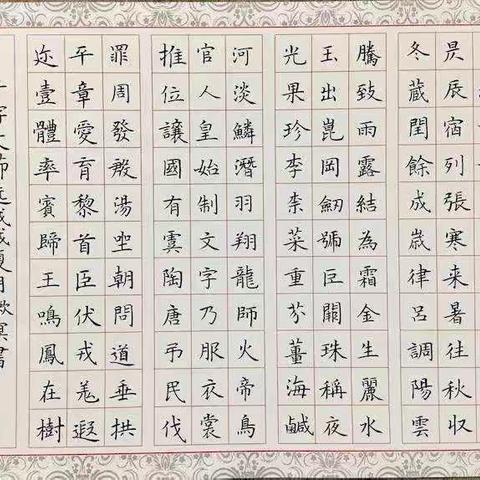 昃辰宿列張寒来暑往秋収
冬蔵閏餘成嵗律呂調陽雲
騰致雨露結為霜金生麗水
玉出崑岡釼號巨闕珠稱夜
光果珍李柰菜重芥薑海鹹
河淡鱗潛羽翔龍師火帝鳥
官人皇始制文字乃服衣裳
推位讓國有虞陶唐弔民伐
罪周發殷湯坐朝問道垂拱
平章愛育黎首臣伏戎羌遐
迩壹體率賓歸王鳴鳳在樹
千字文節选夏月書